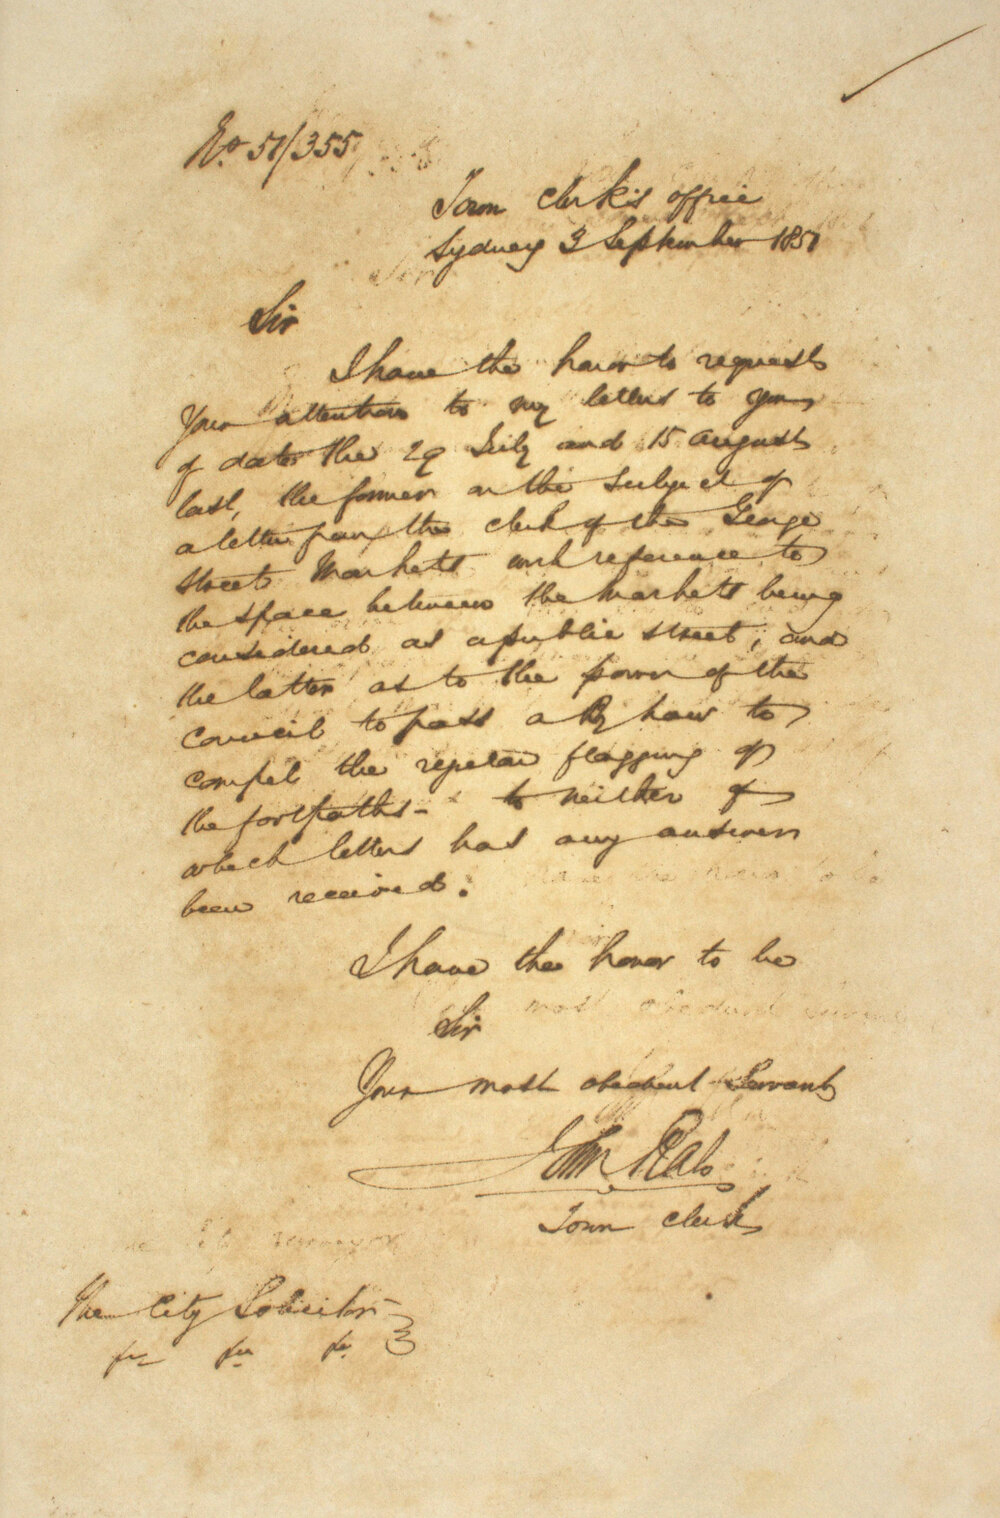 No. 51/355
Town Clerk's office
Sydney 3 September 1851
Sir
I have the honor to request
Your attention to my letters to you
of date the 29 July and 15 August
last, the former on the subject of
a letter from the Clerk of the George
Street Markets with reference to
the space between the Markets being
considered as a public street; and
the latter as to the power of the
Council to pass a By Law to
compel the regular flagging of
the footpaths - to neither of
which letters has any answer
been received.
I have the honor to be
Sir
Your most obedient Servant
John
Town Clerk
The City Solicitor